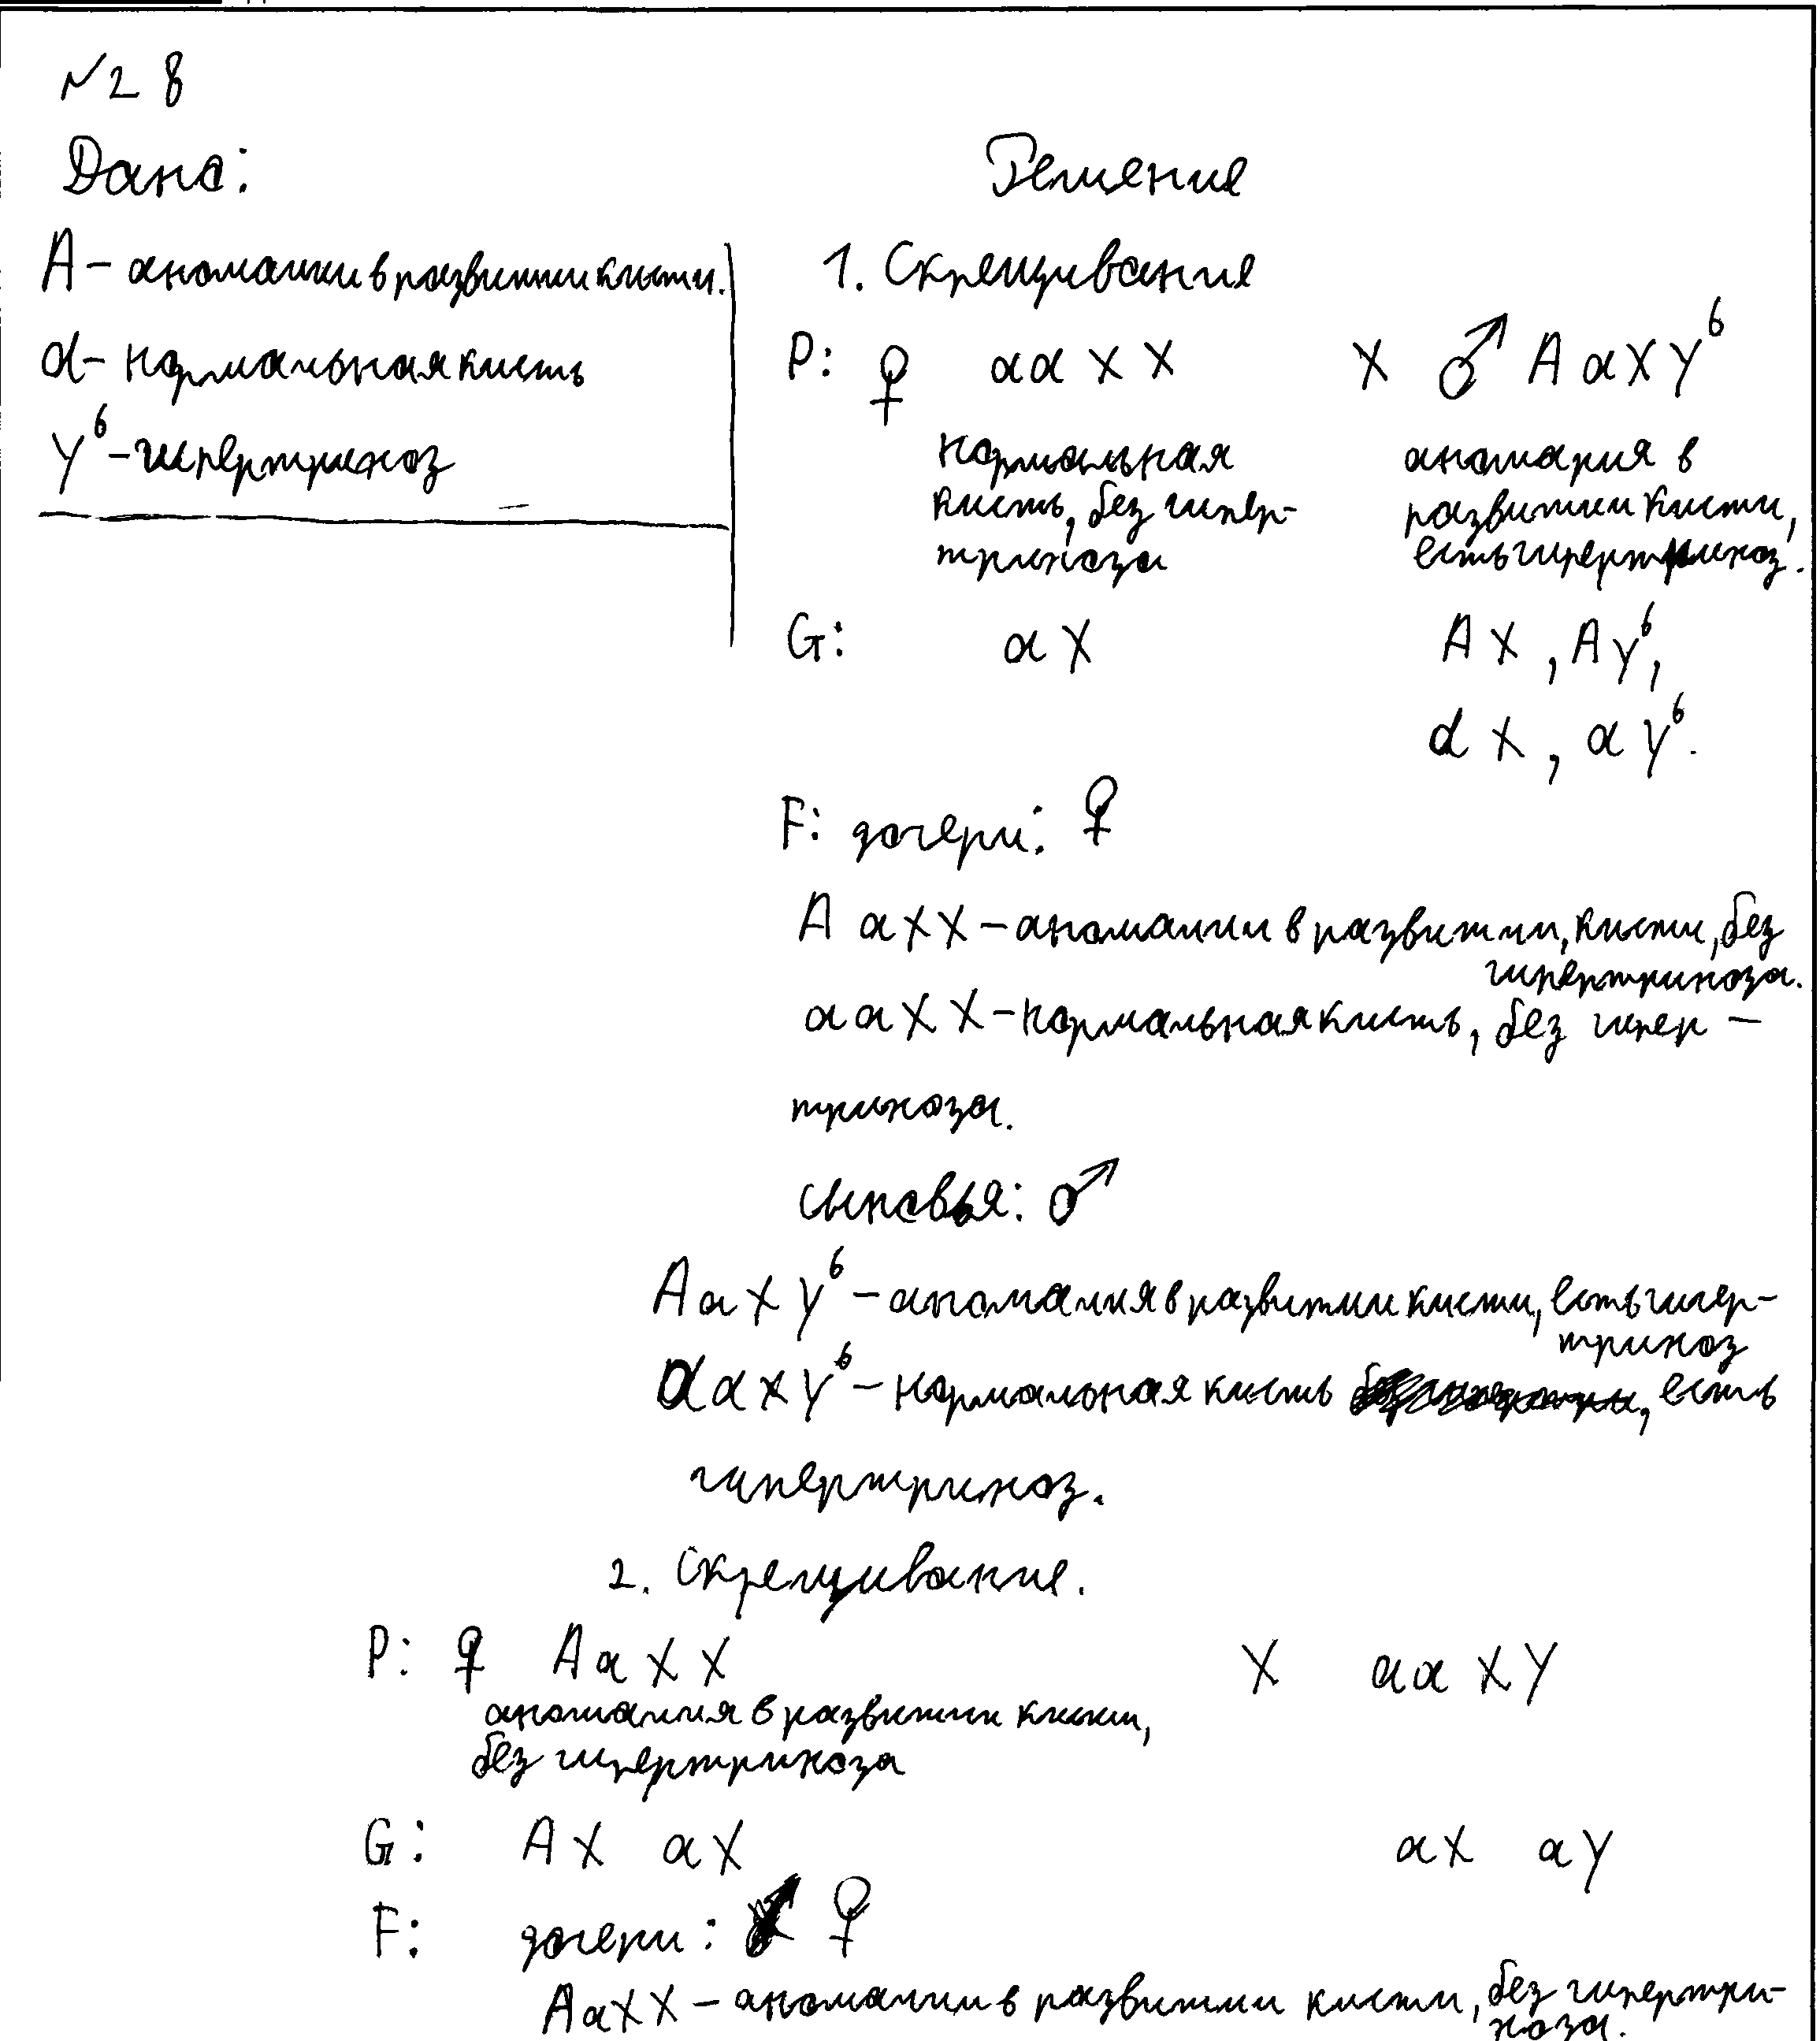 №28
Дано:
Решение
А – аномалии в развитии кисти.
1. Скрещивание
а – нормальная кисть
P: ♀ аа X X X ♂ А а X Y^б
Y^б – гипертрихоз
нормальная
кисть, без гипер-
трихоза
аномария в
развитии кисти,
есть гипертрихоз.
G: а X
А X , А Y^б,
а X , а Y^б.
F: дочери: ♀
А а X X – аномалии в развитии, кисти, без
гипертрихоза.
а а X X – нормальная кисть, без гипер –
трихоза.
сыновья: ♂
А а X Y^б – аномалия в развитии кисти, есть гипер-
трихоз
а а X Y^б – нормальная кисть , есть
гипертрихоз.
2. Скрещивание.
P: ♀ А а X X X аа X Y
аномалия в развитии кисти,
без гипертрихоза
G: А X а X а X а Y
F: дочери: ♀
А а X X – аномалии в развитии кисти, без гипертри-
хоза.